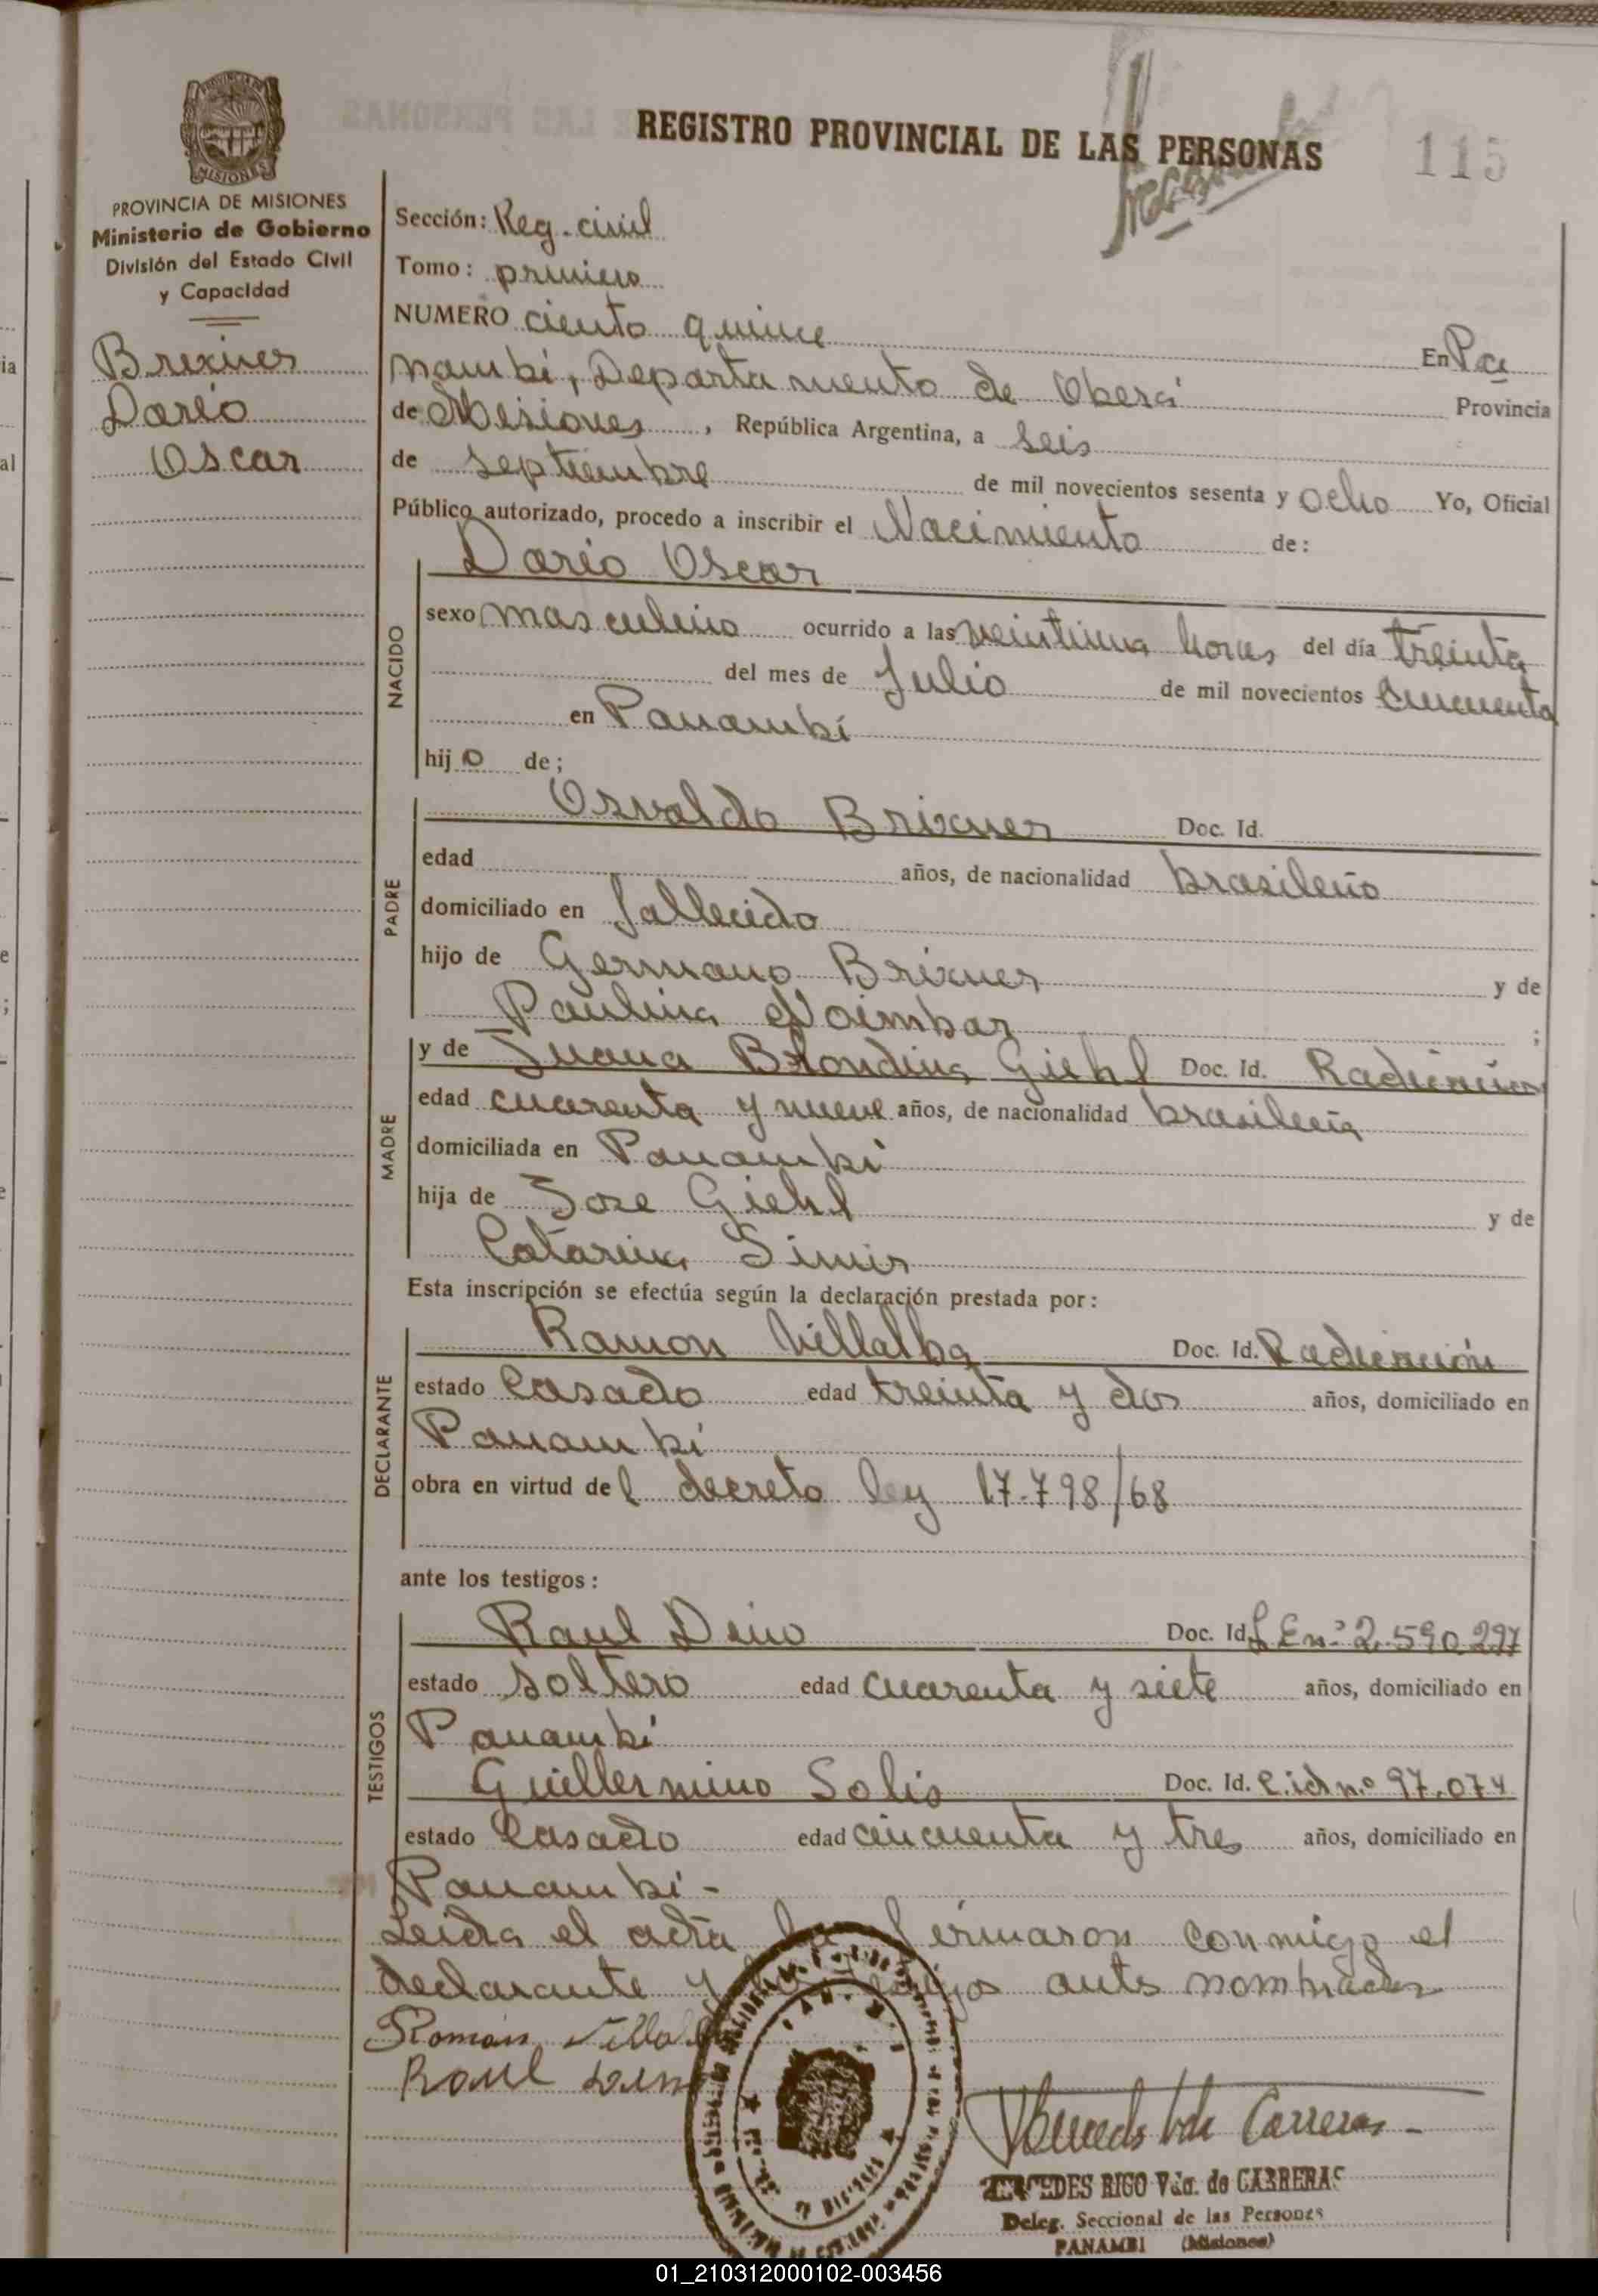 REGISTRO PROVINCIAL DE LAS PERSONAS
115
PROVINCIA DE MISIONES
PROVINCIA DE MISIONES
Ministerio de Gobierno
División del Estado Civil
y Capacidad
Brixner
Dario
Oscar
Sección: Reg. civil
Tomo: primero
NUMERO ciento quince En Pa
nambí, Departamento de Oberá Provincia
de Misiones, República Argentina, a seis
de septiembre de mil novecientos sesenta y ocho Yo, Oficial
Público autorizado, procedo a inscribir el Nacimiento de:
NACIDO
Dario Oscar
sexo masculino ocurrido a las veintiuna horas del día treinta
del mes de Julio de mil novecientos cincuenta
en Panambí
hijo de;
PADRE
Osvaldo Brixner Doc. Id.
edad años, de nacionalidad brasileño
domiciliado en fallecido
hijo de Germano Brixner y de
Paulina ;
MADRE
y de Juana Blondina Giehl Doc. Id. Radicación
edad cuarenta y nueve años, de nacionalidad brasileña
domiciliada en Panambí
hija de Jose Giehl y de
Catarina
Esta inscripción se efectúa según la declaración prestada por:
DECLARANTE
Ramon Villalba Doc. Id. Radicación
estado Casado edad treinta y dos años, domiciliado en
Panambí
obra en virtud del decreto ley 17.798/68
ante los testigos:
TESTIGOS
Raul Doc. Id. L En° 2.590.297
estado soltero edad cuarenta y siete años, domiciliado en
Panambí
Guillermino Solis Doc. Id. C.id n.° 97.074
estado Casado edad cincuenta y tres años, domiciliado en
Panambí-
Leida el acta la firmaron conmigo el
declarante y los testigos antes nombrados
Raul
Carreras
MERCEDES RIGO Vda. de CARRERAS
Deleg. Seccional de las Personas
PANAMBI (Misiones)
01_210312000102-003456